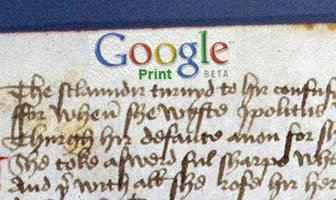 Google
Print BETA
The sclaundir turnyd to hir
for when she wyste ypolitus
Thurgh hir defaute anon for
She toke a swerd ful sharpe
And with all she rofe hir